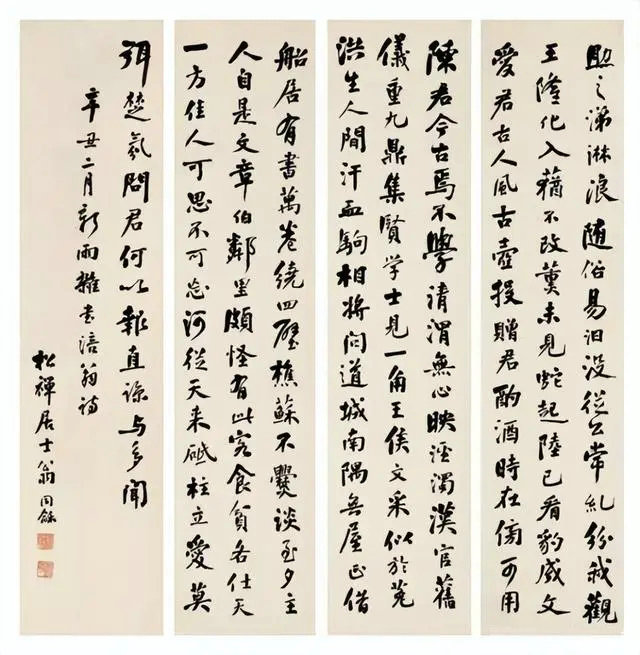 助之涕淋浪随俗易汩没從公常糺紛我觀
王隆化入蕕不改薰未見蛇起陸已看豹成文
愛君古人風古壺投贈君酌酒時在傍可用
陳君今古焉不學清渭無心映涇濁漢官舊
儀重九鼎集賢学士見一角王侯文采似於菟
洪生人間汗血駒相将问道城南隅無屋正借
船居有書萬卷繞四壁樵蘇不爨談至夕主
人自是文章伯鄰里頗怪有此客食貧各仕天
一方佳人可思不可忘河從天来砥柱立愛莫
弭楚氛問君何以報直諒与多聞
辛丑二月新雨雜書涪翁詩
松禪居士翁同龢